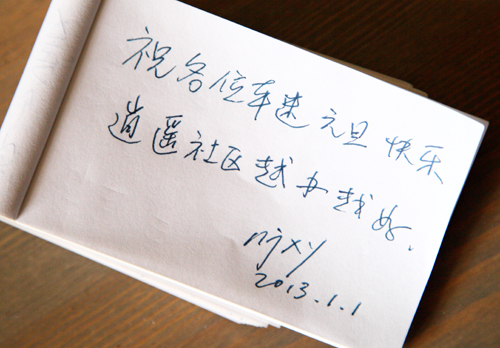 祝各位车速元旦快乐
逍遥社区越办越好.
njxy
2013.1.1